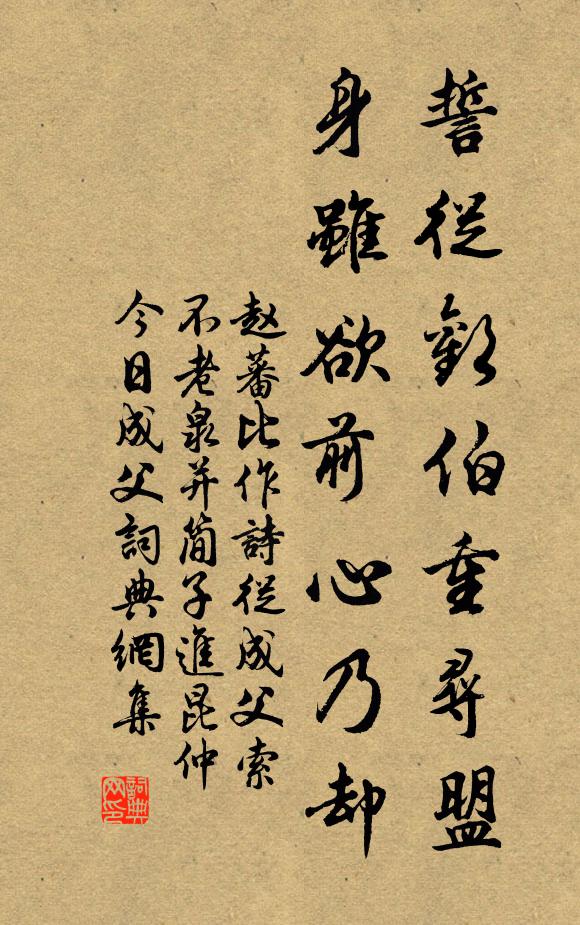 誓從歡伯重尋盟
身雖欲前心乃却
赵蕃比作詩從成父索
不老泉并簡子進昆仲
今日成父詞典網集
詞典网印